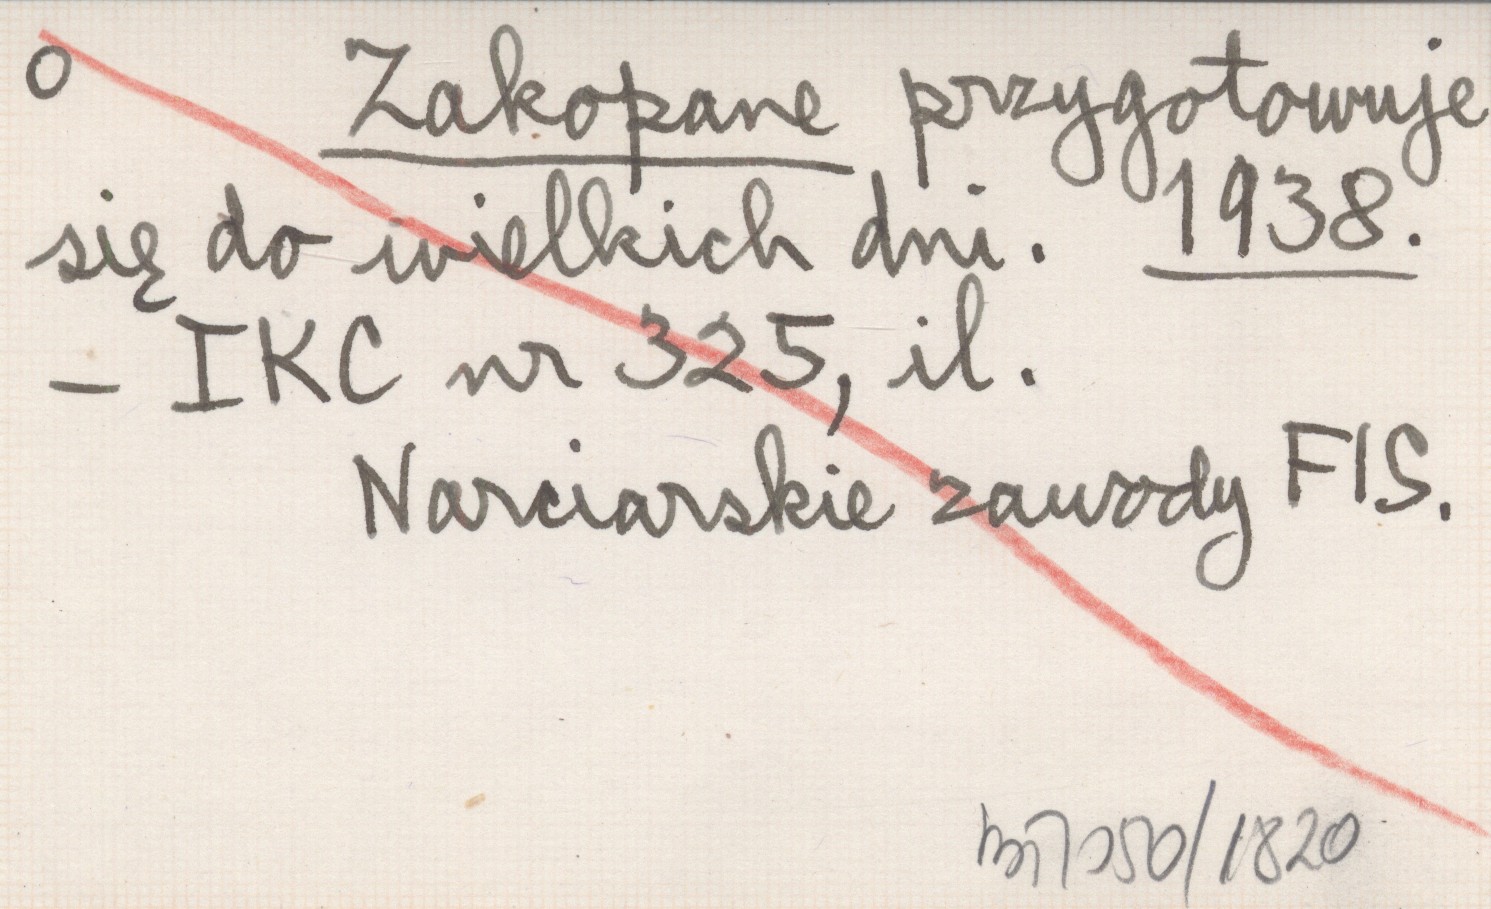 o Zakopane przygotowuje
się do wielkich dni. 1938.
– IKC nr 325, il.
Narciarskie zawody FIS.
/1820